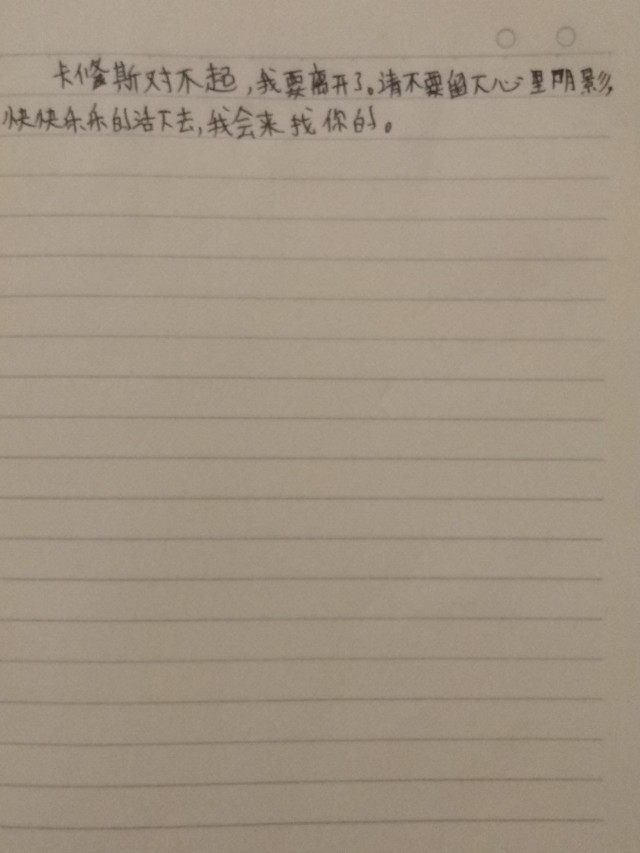 卡修斯对不起，我要离开了。请不要留下心里阴影，
快快乐乐的活下去，我会来找你的。